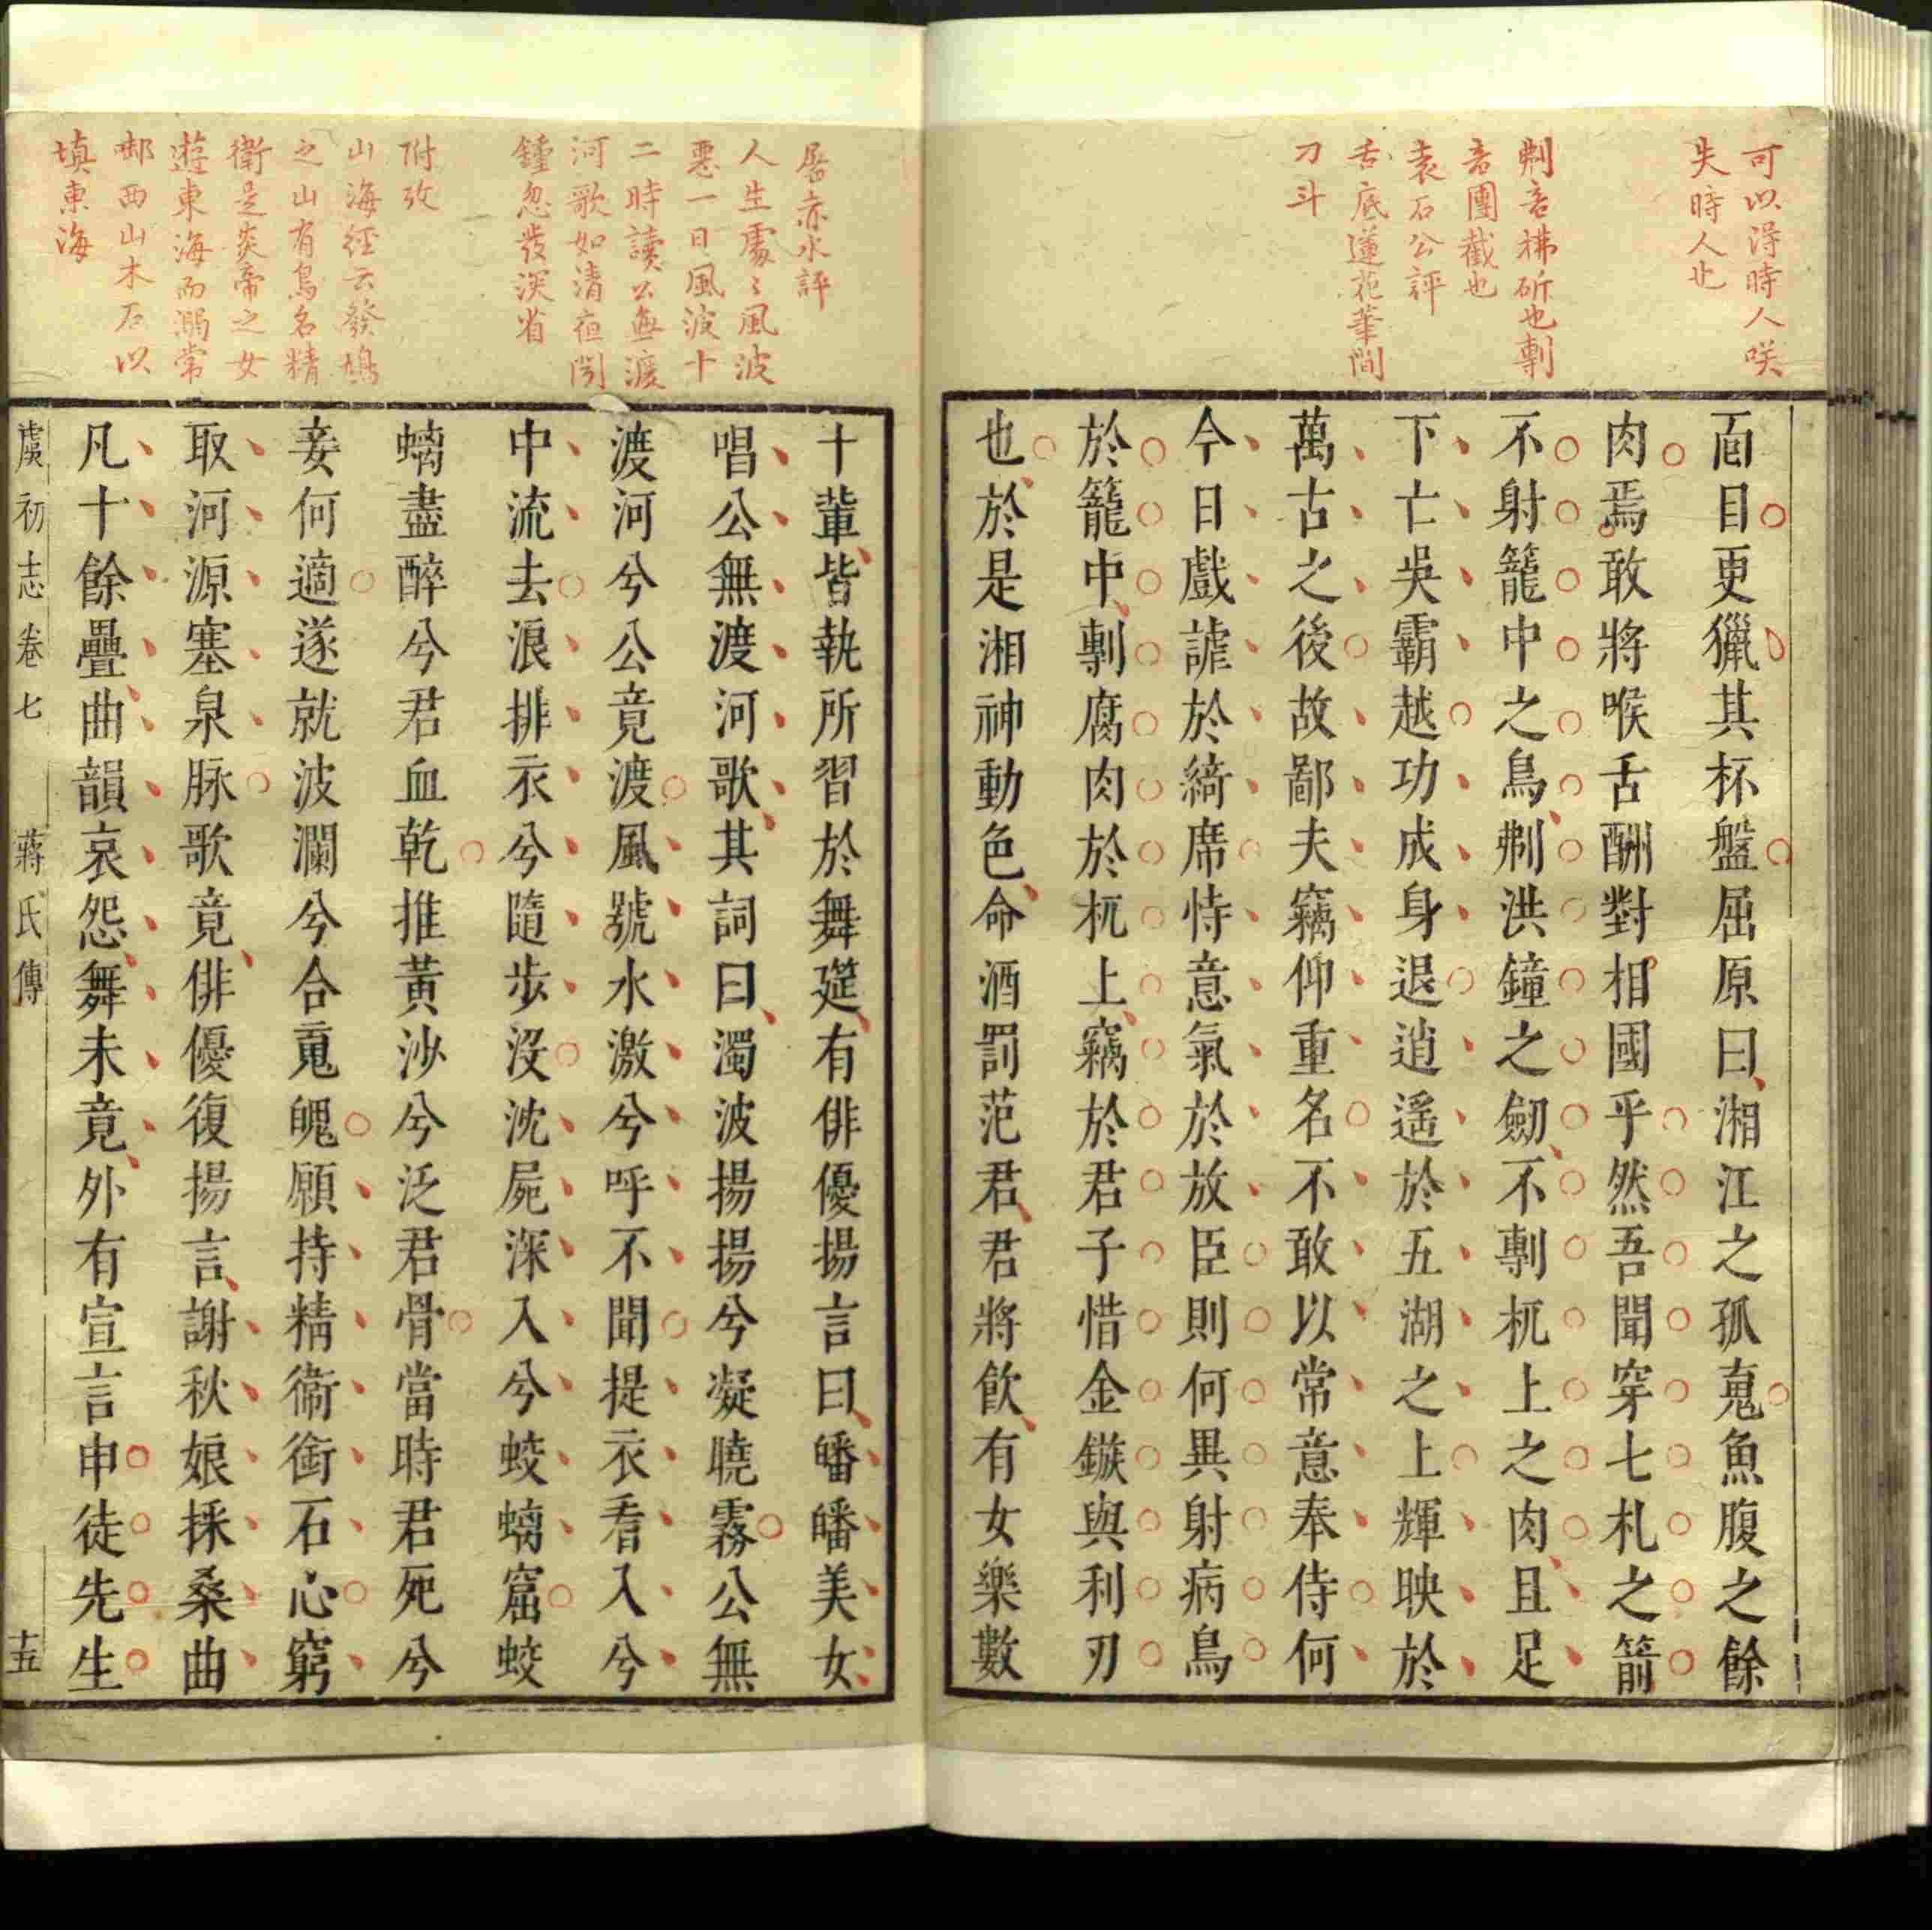 可以得時人咲
失時人也
剸音摶斫也剸
音團截也
袁石公評
舌底蓮花葦間
刀斗
面目更獵其杯盤屈原曰湘江之孤䰟魚腹之餘
肉焉敢將喉舌酬對相國乎然吾聞穿七札之箭
不射籠中之鳥剸洪鐘之劒不剸杌上之肉且足
下亡吳霸越功成身退逍遙於五湖之上輝映於
萬古之後故鄙夫竊仰重名不敢以常意奉侍何
今日戲謔於綺席恃意氣於放臣則何異射病鳥
於籠中剸腐肉於杌上竊於君子惜金鏃與利刃
也於是湘神動色命酒罰范君君將飲有女樂數
屠赤水評
人生處〻風波
惡一日風波十
二時讀公無渡
河歌如清夜聞
鍾忽發深省
附攷
山海經云發鳩
之山有鳥名精
衛是炎帝之女
遊東海而溺常
啣西山木石以
填東海
十輩皆執所習於舞筵有俳優揚言曰皤皤美女
唱公無渡河歌其詞曰濁波揚揚兮凝曉霧公無
渡河兮公竟渡風號水激兮呼不聞提衣看入兮
中流去浪排衣兮隨步沒沈屍深入兮蛟螭窟蛟
螭盡醉兮君血乾推黃沙兮泛君骨當時君死兮
妾何適遂就波瀾兮合䰟魄願持精衞銜石心窮
取河源塞泉脉歌竟俳優復揚言謝秋娘採桑曲
凡十餘疊曲韻哀怨舞未竟外有宣言申徒先生
虞初志卷七 蔣氏傳 十五